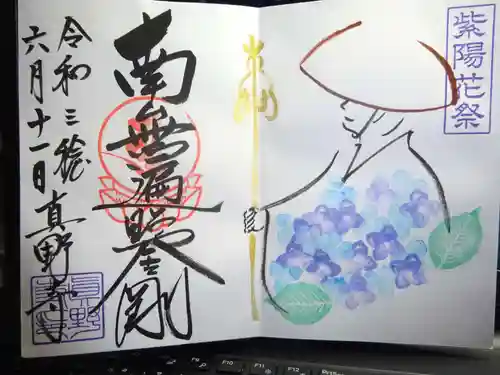 紫陽花祭
南無遍照金剛
令和三稔
六月十一日
真野寺
F10
F11
F12